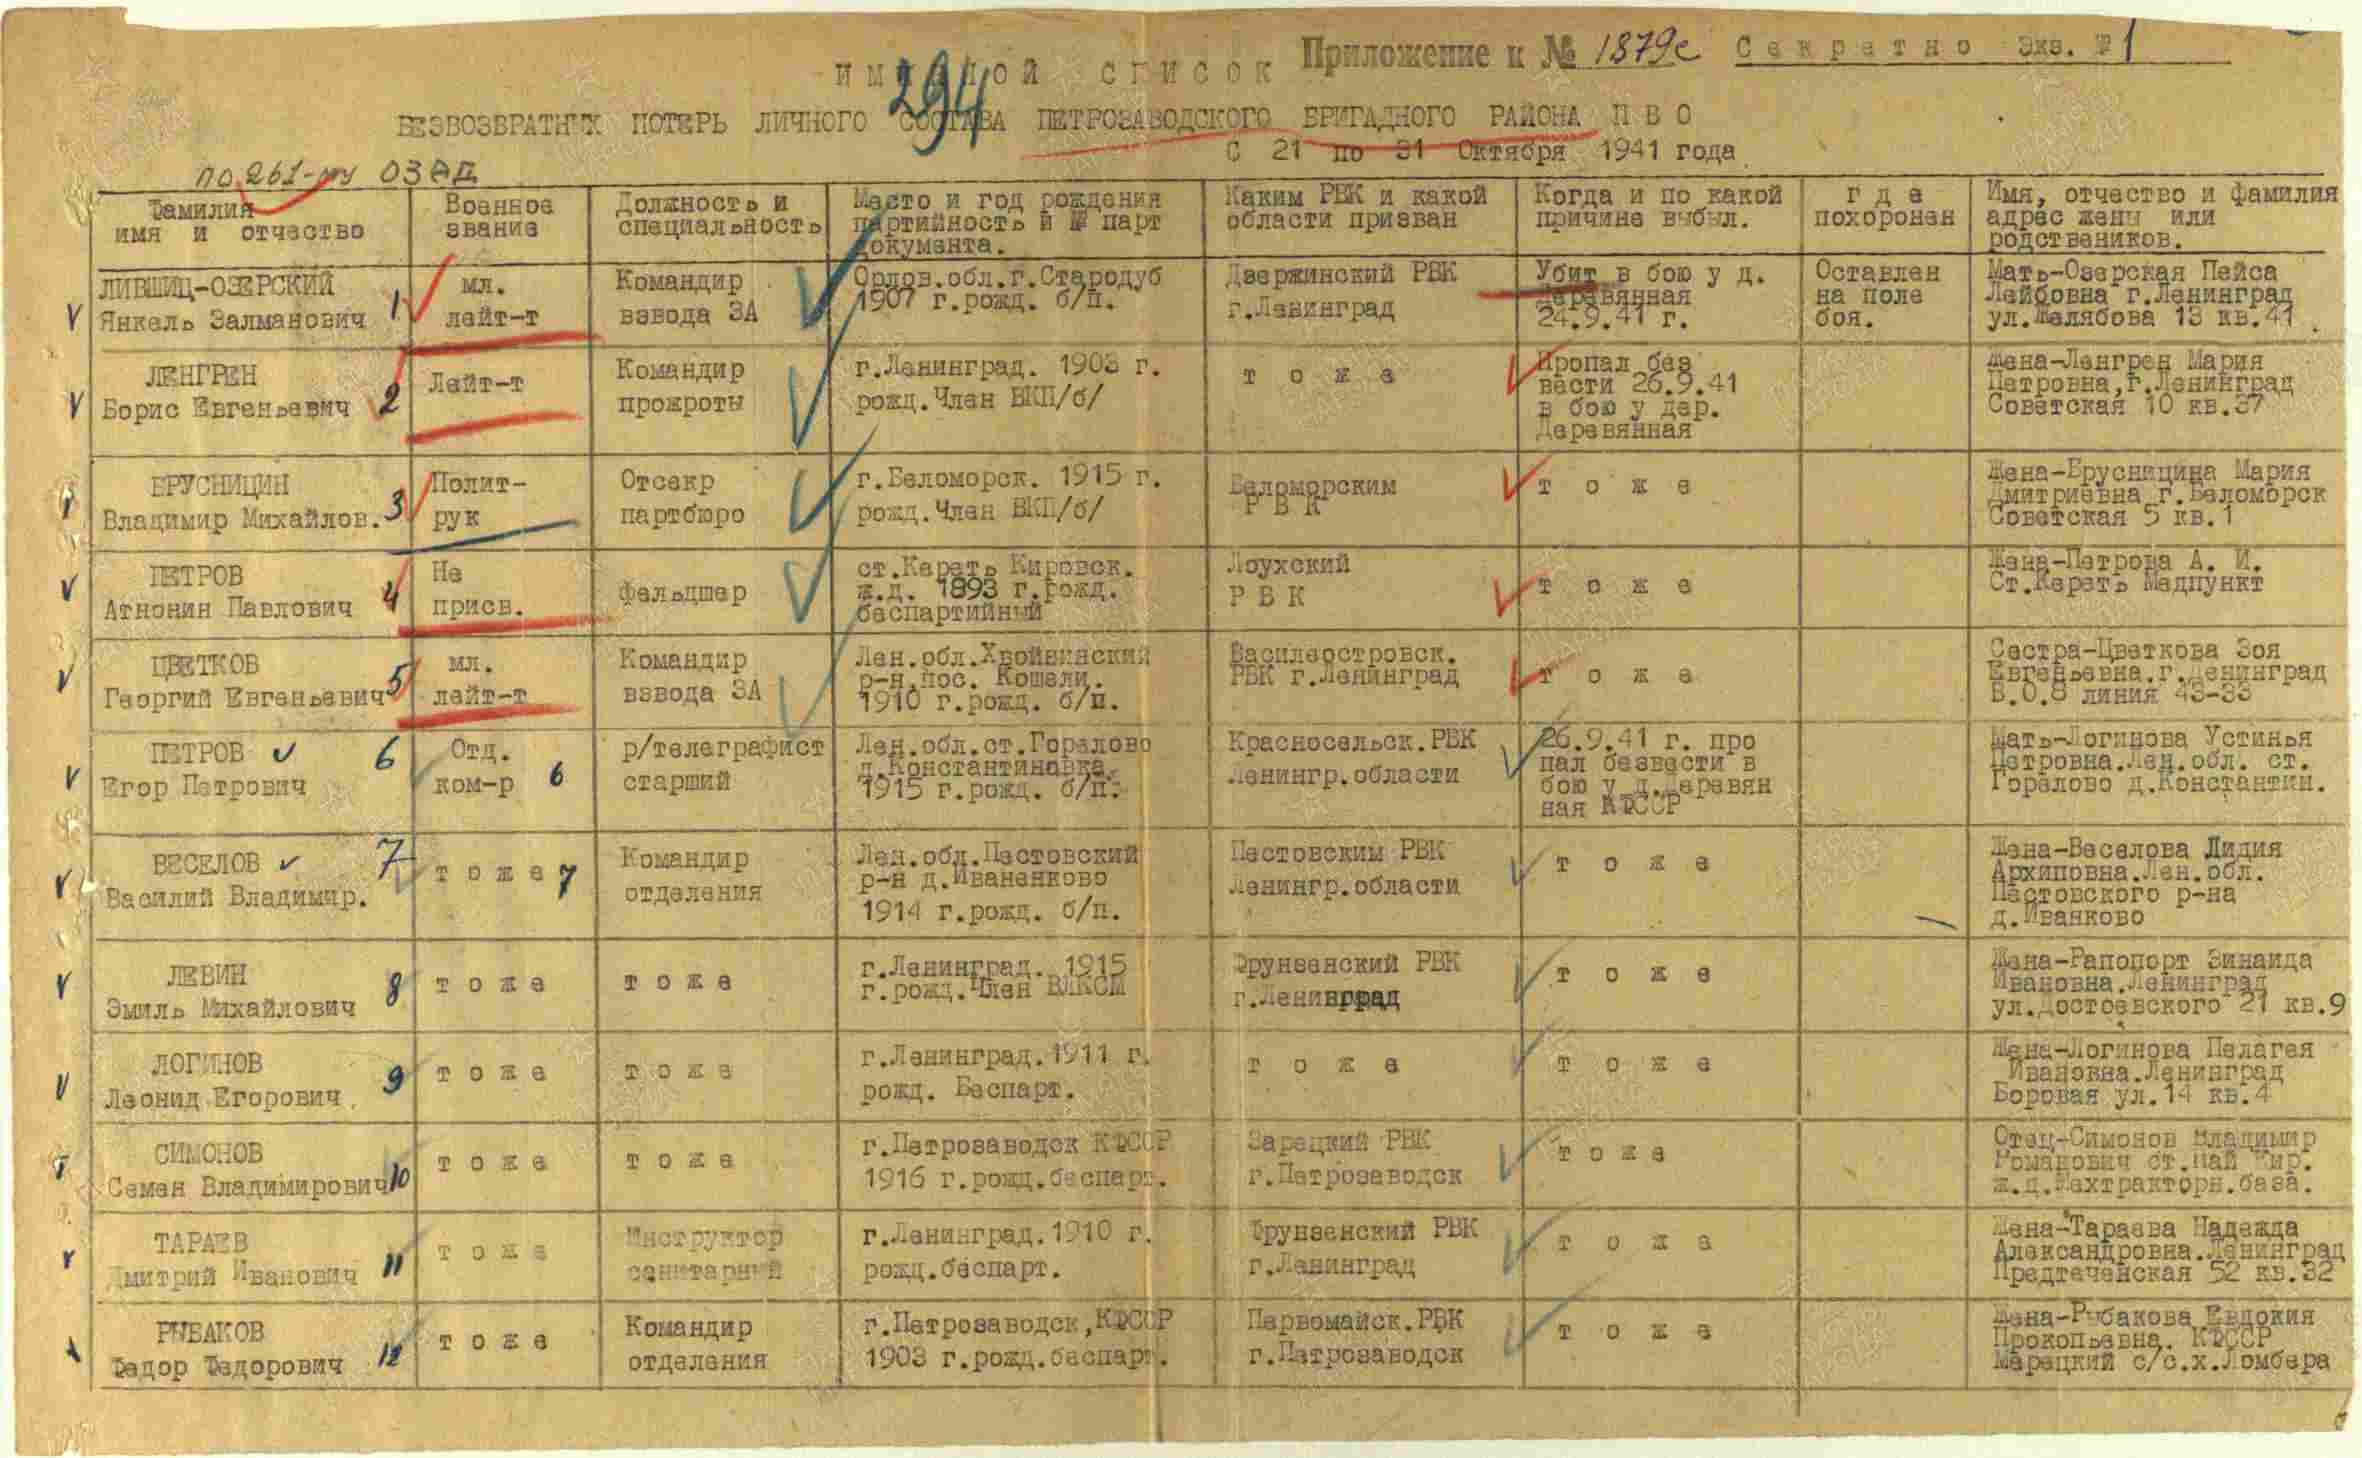 ИМЕННОЙ СПИСОК Приложение к № 1879с Секретно Экз. № 1
294
БЕЗВОЗВРАТНЫХ ПОТЕРЬ ЛИЧНОГО СОСТАВА ПЕТРОЗАВОДСКОГО БРИГАДНОГО РАЙОНА ПВО
С 21 по 31 Октября 1941 года
по 261-му ОЗАД
Фамилия
имя и отчество
Военное
звание
Должность и
специальность
Место и год рождения
партийность и № парт
документа.
Каким РВК и какой
области призван
Когда и по какой
причине выбыл.
где
похоронен
Имя, отчество и фамилия
адрес жены или
родствеников.
ЛИВШИЦ-ОЗЕРСКИЙ
Янкель Залманович 1
мл.
лейт-т
Командир
взвода ЗА
Орлов.обл.г.Стародуб
1907 г.рожд. б/п.
Дзержинский РВК
г.Ленинград
Убит в бою у д.
Деревянная
24.9.41 г.
Оставлен
на поле
боя.
Мать-Озерская Пейса
Лейбовна г.Ленинград
ул.Желябова 13 кв.41
ЛЕНГРЕН
Борис Евгеньевич 2
Лейт-т
Командир
прожроты
г.Ленинград. 1903 г.
рожд.Член ВКП/б/
тоже
Пропал без
вести 26.9.41
в бою у дер.
Деревянная
Жена-Ленгрен Мария
Петровна,г.Ленинград
Советская 10 кв.37
БРУСНИЦИН
Владимир Михайлов. 3
Полит-
рук
Отсекр
партбюро
г.Беломорск. 1915 г.
рожд.Член ВКП/б/
Беломорским
РВК
тоже
Жена-Брусницина Мария
Дмитриевна г.Беломорск
Советская 5 кв.1
ПЕТРОВ
Атнонин Павлович 4
Не
присв.
фельдшер
ст.Кереть Кировск.
ж.д. 1893 г.рожд.
беспартийный
Лоухский
РВК
тоже
Жена-Петрова А. И.
Ст.Кереть Медпункт
ЦВЕТКОВ
Георгий Евгеньевич 5
мл.
лейт-т
Командир
взвода ЗА
Лен.обл.Хвойвинский
р-н,пос. Кошели.
1910 г.рожд. б/п.
Василеостровск.
РВК г.Ленинград
тоже
Сестра-Цветкова Зоя
Евгеньевна.г.Ленинград
В.О.8 линия 43-33
ПЕТРОВ 6
Егор Петрович
Отд.
ком-р 6
р/телеграфист
старший
Лен.обл.ст.Горелово
д.Константиновка.
1915 г.рожд. б/п.
Красносельск.РВК
Ленингр.области
26.9.41 г. про
пал безвести в
бою у д.Деревян
ная КФССР
Мать-Логинова Устинья
Петровна.Лен.обл. ст.
Горелово д.Константин.
ВЕСЕЛОВ 7
Василий Владимир.
тоже 7
Командир
отделения
Лен.обл.Пестовский
р-н д.Иваненково
1914 г.рожд. б/п.
Пестовским РВК
Ленингр.области
тоже
Жена-Веселова Лидия
Архиповна.Лен.обл.
Пестовского р-на
д.Иванково
ЛЕВИН
Эмиль Михайлович 8
тоже
тоже
г.Ленинград. 1915
г.рожд.Член ВЛКСМ
Фрунзенский РВК
г.Ленинград
тоже
Жена-Рапопорт Зинаида
Ивановна.Ленинград
ул.Достоевского 21 кв.9
ЛОГИНОВ
Леонид Егорович 9
тоже
тоже
г.Ленинград.1911 г.
рожд. Беспарт.
тоже
тоже
Жена-Логинова Пелагея
Ивановна.Ленинград
Боровая ул.14 кв.4
СИМОНОВ
Семен Владимирович 10
тоже
тоже
г.Петрозаводск КФССР
1916 г.рожд.беспарт.
Зарецкий РВК
г.Петрозаводск
тоже
Отец-Симонов Владимир
Романович ст.Май Кир.
ж.д.Мехтракторн.база.
ТАРАЕВ
Дмитрий Иванович 11
тоже
Инструктор
санитарный
г.Ленинград.1910 г.
рожд.беспарт.
Фрунзенский РВК
г.Ленинград
тоже
Жена-Тараева Надежда
Александровна.Ленинград
Предтеченская 52 кв.32
РЫБАКОВ
Федор Федорович 12
тоже
Командир
отделения
г.Петрозаводск,КФССР
1903 г.рожд.беспарт.
Первомайск.РВК
г.Петрозаводск
тоже
Жена-Рыбакова Евдокия
Прокопьевна. КФССР
Марецкий с/с.х.Ломбера